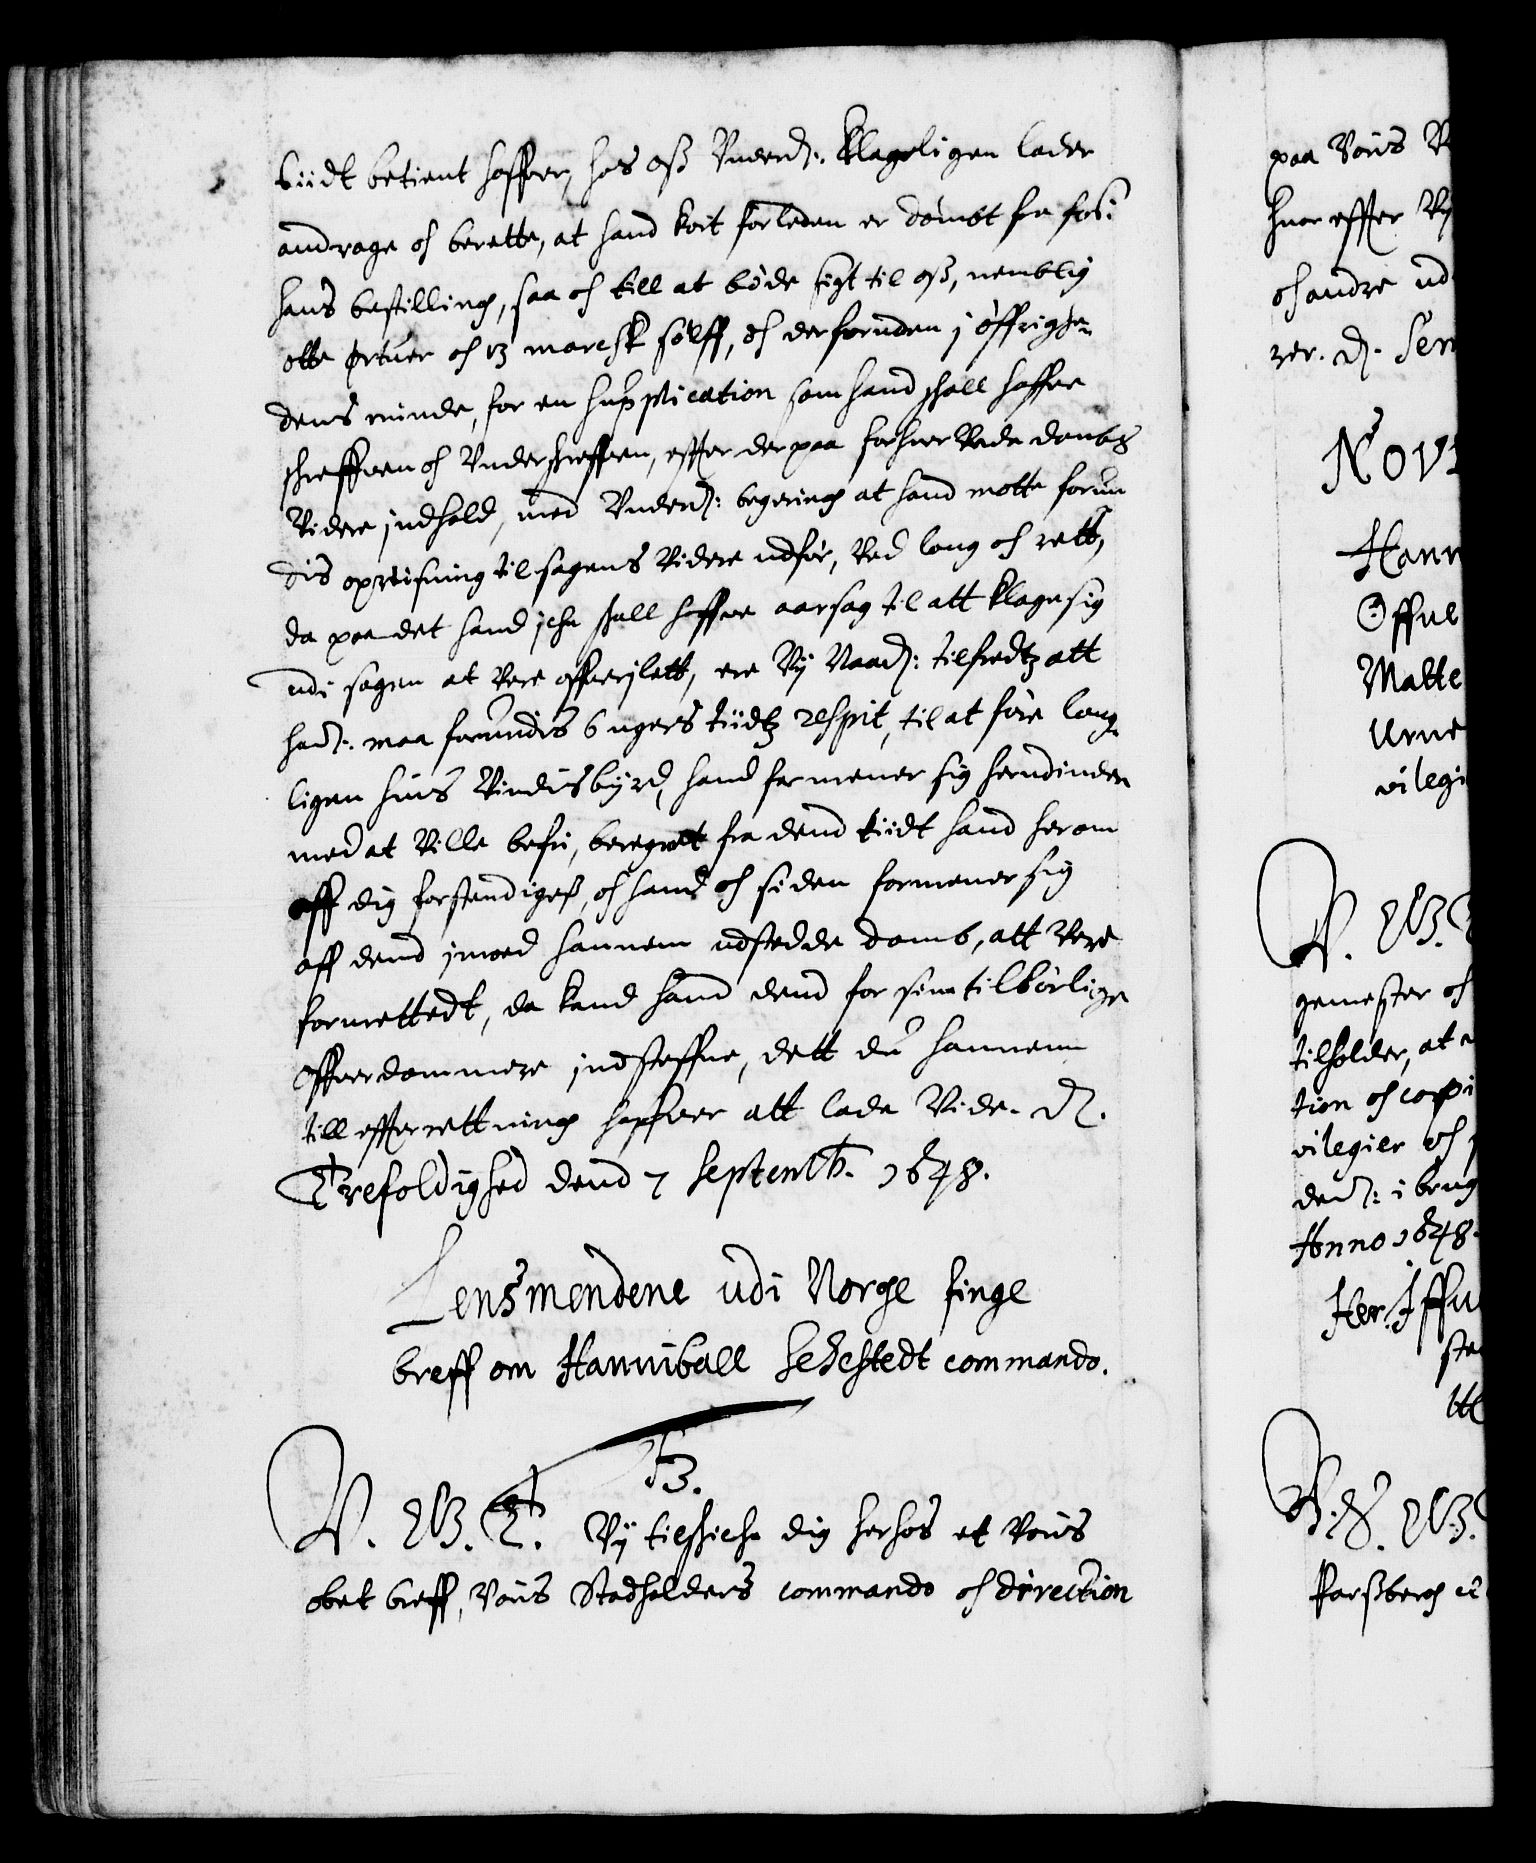 tiidt betient haffver, hos oß Underd: klageligen lader
andrage och berette, at hand kort forleden er dømbt fra forß:
hans bestilling, saa och till at bøde sigt til oß, nemblig
otte ørtuer och 13 marck sølff, och derforuden j øffrighe-
dens minde, for en Supplication som hand schall haffve
schreffven och Underschreffven, effter derpaa forhverVede dombs
Videre jndhold, med Underd: begering at hand motte forun
dis opreisning til sagens Videre udfør, Ved loug och rett,
da paa det hand iche schall haffve aarsag til att klage sig
udi sagen at Vere offverjlett, ere Vy Naad: tilfredtz att
hand: maa forundis 6 ugers tiidtz respit, til at føre loug-
ligen huis Vindisbyrd, hand formener sig herudinden
med at Ville befri, beregnet fra dend tiidt hand herom
aff dig forstendiges, och hand och siden formener sig
aff dend jmod hannem udstedde domb, att Vere
forurettedt, da kand hand dend for sine tilbørlige
Offverdommere jndsteffne, dett du hannem
till effterrettning haffver att lade Vide. D.
Trefoldighed dend 7 Septemb. 1648.
Lensmendene udi Norge finge
breff om Hanniball Sehestedt commando.
V. G. T. Vy tilschiche dig herhos et Voris
obet breff, Voris Stadholders commando och direction
paa Voris
huor effter Vy
och andre ud
rer. D.
Hann
Offue
Matte
Urne
vilegi
gemester och
tilholder, at
tion och copi
vilegier och
Anno 1648.
Her Iffue
Parßberg